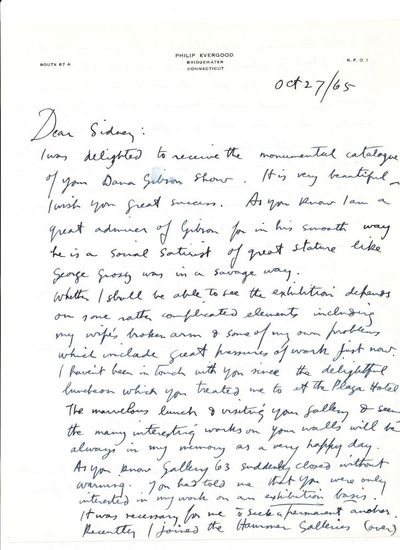 PHILIP EVERGOOD
ROUTE 67 A
BRIDGEWATER
R. F. D. 1
CONNECTICUT
Oct 27/65
Dear Sidney:
I was delighted to receive the monumental catalogue
of your Dana Gibson Show. It is very beautiful –
I wish you great success. As you know I am a
great admirer of Gibson for in his smooth way
he is a social satirist of great stature like
George Grosz was in a savage way.
Whether I shall be able to see the exhibition depends
on some rather complicated elements including
my wife's broken arm & some of my own problems
which include great pressures of work just now.
I haven't been in touch with you since the delightful
luncheon which you treated me to at the Plaza Hotel
The marvelous lunch & visiting your gallery & seeing
the many interesting works on your walls will be
always in my memory as a very happy day.
As you know Gallery 63 suddenly closed without
warning. You had told me that you were only
interested in my work on an exhibition basis.
It was necessary for me to seek a permanent another.
Recently I joined the Hammer Galleries (over)